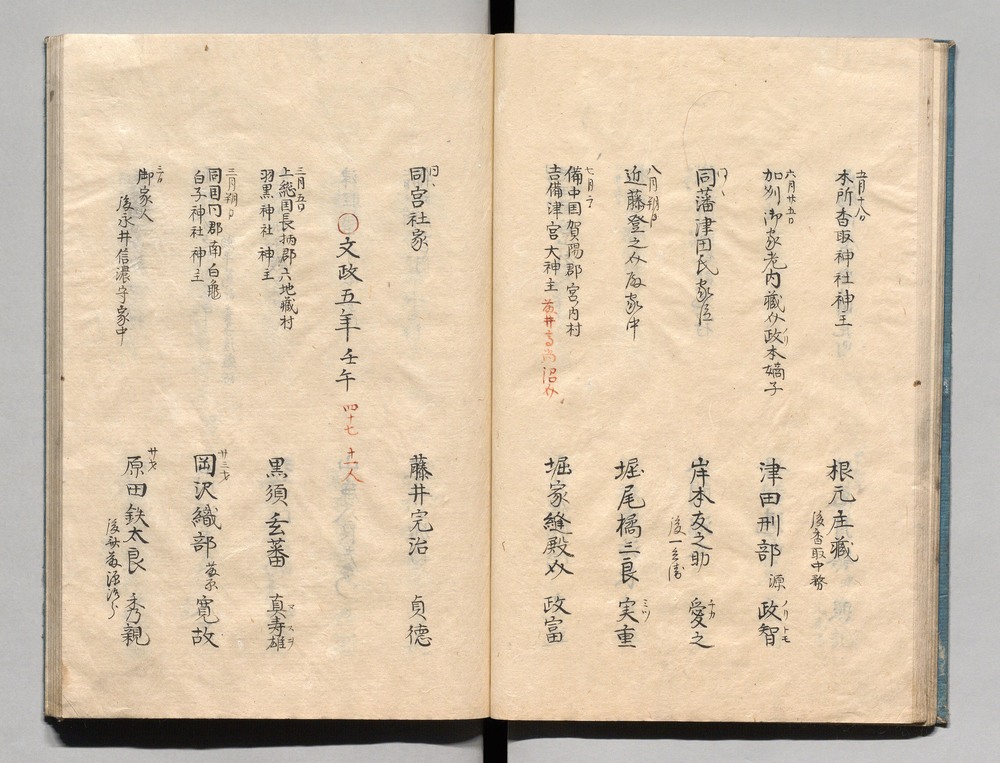 五月十八日
本所香取神社神主
根元主蔵
後香取中務
六月廿五日
加州御家老内蔵介政本嫡子
津田刑部 源 政智
ノリトモ
同藩津田氏家臣
岸本友之助 愛之
チカ
後一兵衛
八月朔日
近藤登之介殿家中
堀尾橘三良 実重
ミツ
七月
備中国賀陽郡宮内村
吉備津宮大神主
堀家縫殿介 政富
同宮社家
藤井完治 貞徳
文政五年 壬午 四十七 十一人
三月五日
上総国長柄郡六地蔵村
羽黒神社 神主
黒須玄蕃 真寿雄
マスヲ
三月朔日
同国同郡南白亀
白子神社 神主
廿三才
岡沢織部 寛故
御家人
後永井信濃守家中
廿才
原田鉄太良 秀親